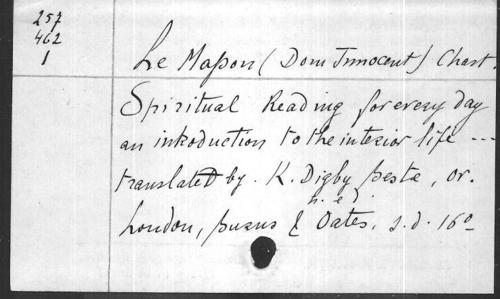 257
462
1
Le Masson (Dom Innocent) Chart.
Spiritual Reading for every day
an introduction to the interior life ---
translated by. K. Digby Beste, Or.
n. e.
London, Burns & Oates, s.d. 16o